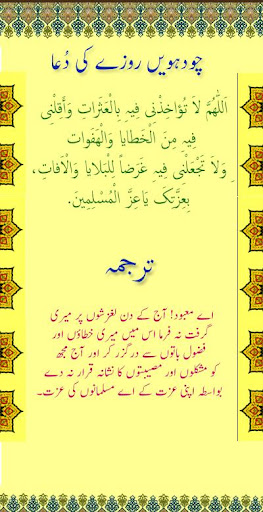 چودہویں روزے کی دُعا
اَللّٰهُمَّ لاَ تُؤاخِذْنِي فِيهِ بِالْعَثَراتِ وَأَقِلْنِي
فِيهِ مِنَ الْخَطايا وَالْهَفَواتِ
وَلاَ تَجْعَلْنِي فِيهِ غَرَضاً لِلْبَلايا وَالْاَفاتِ،
بِعِزَّتِكَ يَاعِزَّ الْمُسْلِمِينَ.
ترجمہ
اے معبود! آج کے دن لغزشوں پر میری
گرفت نہ فرما اس میں میری خطاؤں اور
فضول باتوں سے درگزر کر اور آج مجھ
کو مشکلوں اور مصیبتوں کا نشانہ قرار نہ دے
بواسطہ اپنی عزت کے اے مسلمانوں کی عزت۔